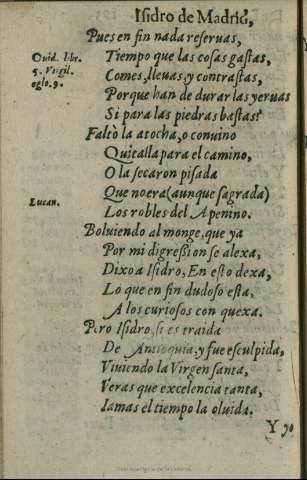 Isidro de Madrid,
Pues en fin nada reseruas,
Tiempo que las cosas gastas,
Comes, lleuas, y contrastas,
Porque han de durar las yeruas
Si para las piedras bastas?
Ouid. libr.
5. Virgil.
eglo. 9.
Faltò la atocha, o conuino
Quitalla para el camino,
O la secaron pisada
Que no era (aunque sagrada)
Los robles del Apenino.
Lucan.
Boluiendo al monge, que ya
Por mi digression se alexa,
Dixo a Isidro, En esto dexa,
Lo que en fin dudoso esta,
A los curiosos con quexa.
Pero Isidro, si es traida
De Antioquia, y fue esculpida,
Viuiendo la Virgen santa,
Veras que excelencia tanta,
Iamas el tiempo la oluida.
Y yo